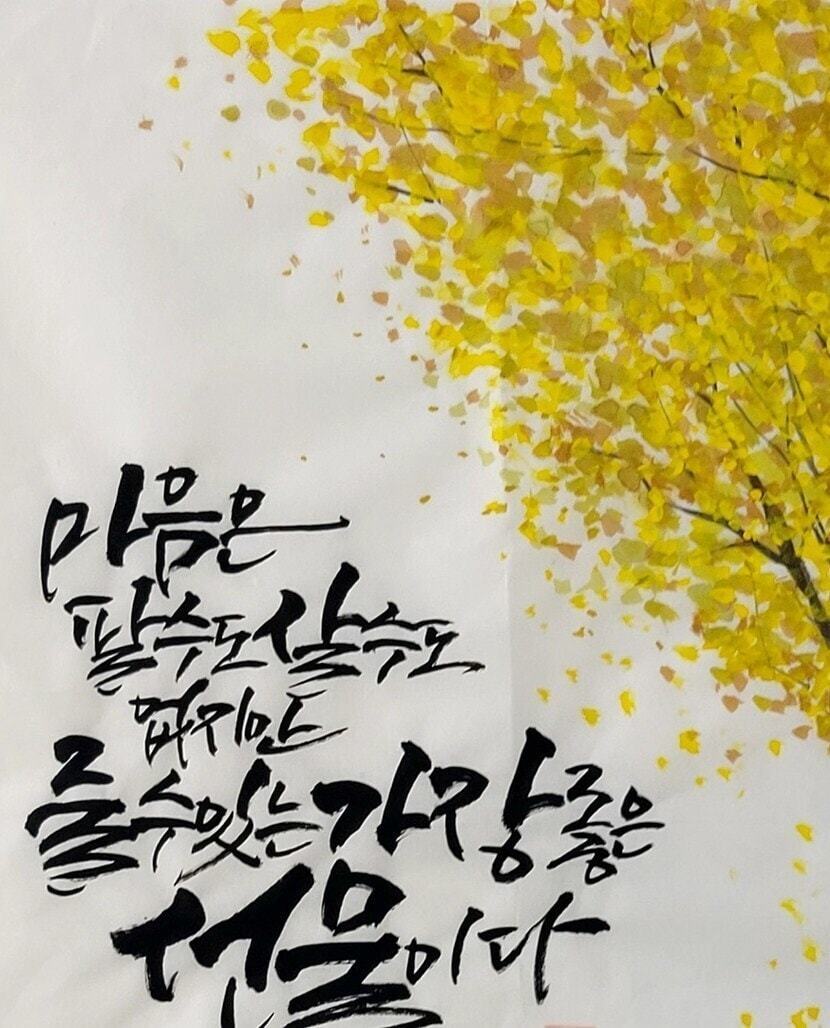 마음은
팔수도 살수도
없지만
줄수있는 가장 좋은
선물이다